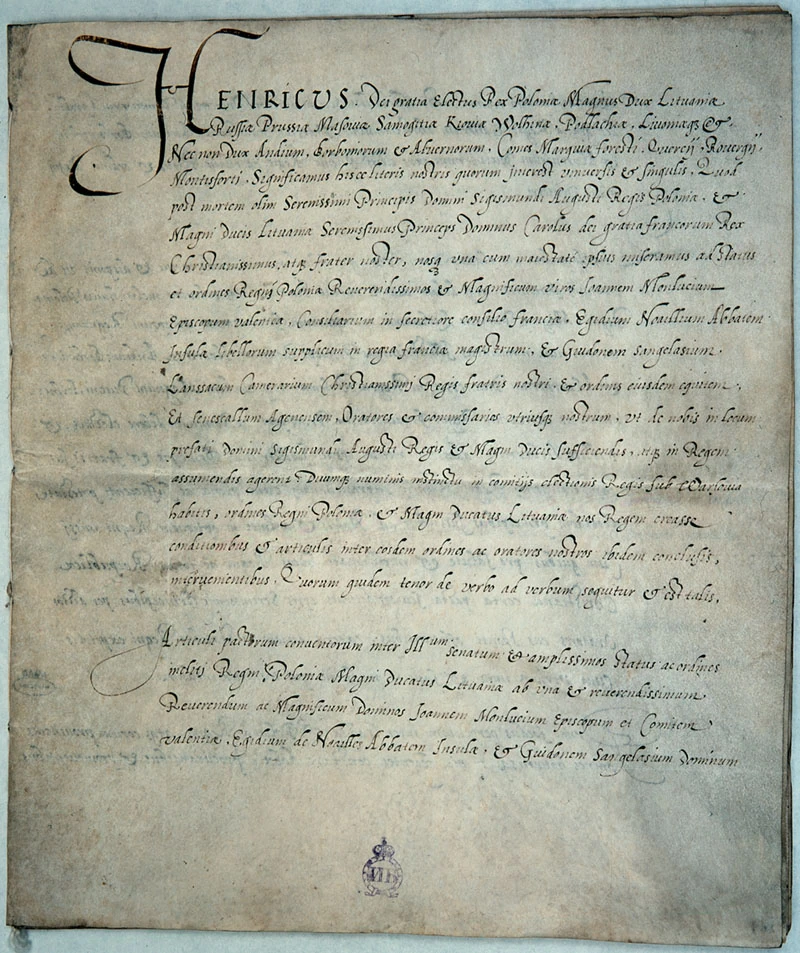 HENRICVS. Dei gratia Electus Rex Poloniæ Magnus Dux Lituaniæ
Russiæ Prussiæ Masoviæ Samogitiæ Kioviæ Wolhinæ, Podlachiæ, Livoniæq3 &
Nec non Dux Andium, Borboniorum & Alvernorum, Comes Marquiæ foresti, Quercij, Rovergij
Montisforti, Significamus hisce literis nostris quorum interest vniversis & singulis, Quod
post mortem olim Serenissimi Principis Domini Sigismundi Augusti Regis Poloniæ, &
Magni Ducis Lituaniæ Serenissimus Princeps Dominus Carolus dei gratia francorum Rex
Christianissimus, atq3 frater noster, nosq3 vna cum maiestate ipsius miseramus ad Status
et ordines Regni Poloniæ Reverendissimos & Magnificum viros Ioannem Monlucium
Episcopum valentiæ, Consiliarium in secretiore consilio franciæ, Egidium Noallium Abbatem
Insulæ libellorum supplicum in regia franciæ magistrum, & Guidonem Sangelasium
Lanssacum Camerarium Christianissimj Regis fratris nostri, & ordinis eiusdem equitem,
Et Senescallum Agenensem, Oratores & commissarios vtriusq3 nostrum, vt de nobis in locum
prefati Domini Sigismundi Augusti Regis & Magni Ducis sufficiendis, atq3 in Regem
assumendis agerent Divinoq3 numinis instinctu in comitijs electionis Regis sub Warsovia
habitis, ordines Regni Poloniæ, & Magni Ducatus Lituaniæ nos Regem creasse
conditionibus & articulis inter eosdem ordines ac oratores nostros ibidem conclusis,
intervenientibus, Quorum quidem tenor de verbo ad verbum sequitur & est talis.
Articuli pactorum conventorum inter Illum senatum & amplissimos Status ac ordines
inclitj Regni Poloniæ Magni Ducatus Lituaniæ ab vna & reverendissimum
Reverendum ac Magnificum Dominos Ioannem Monlucium Episcopum et Comitem
valentiæ, Egidium de Noailles Abbatem Insulæ, & Guidonem Sangelasium Dominum